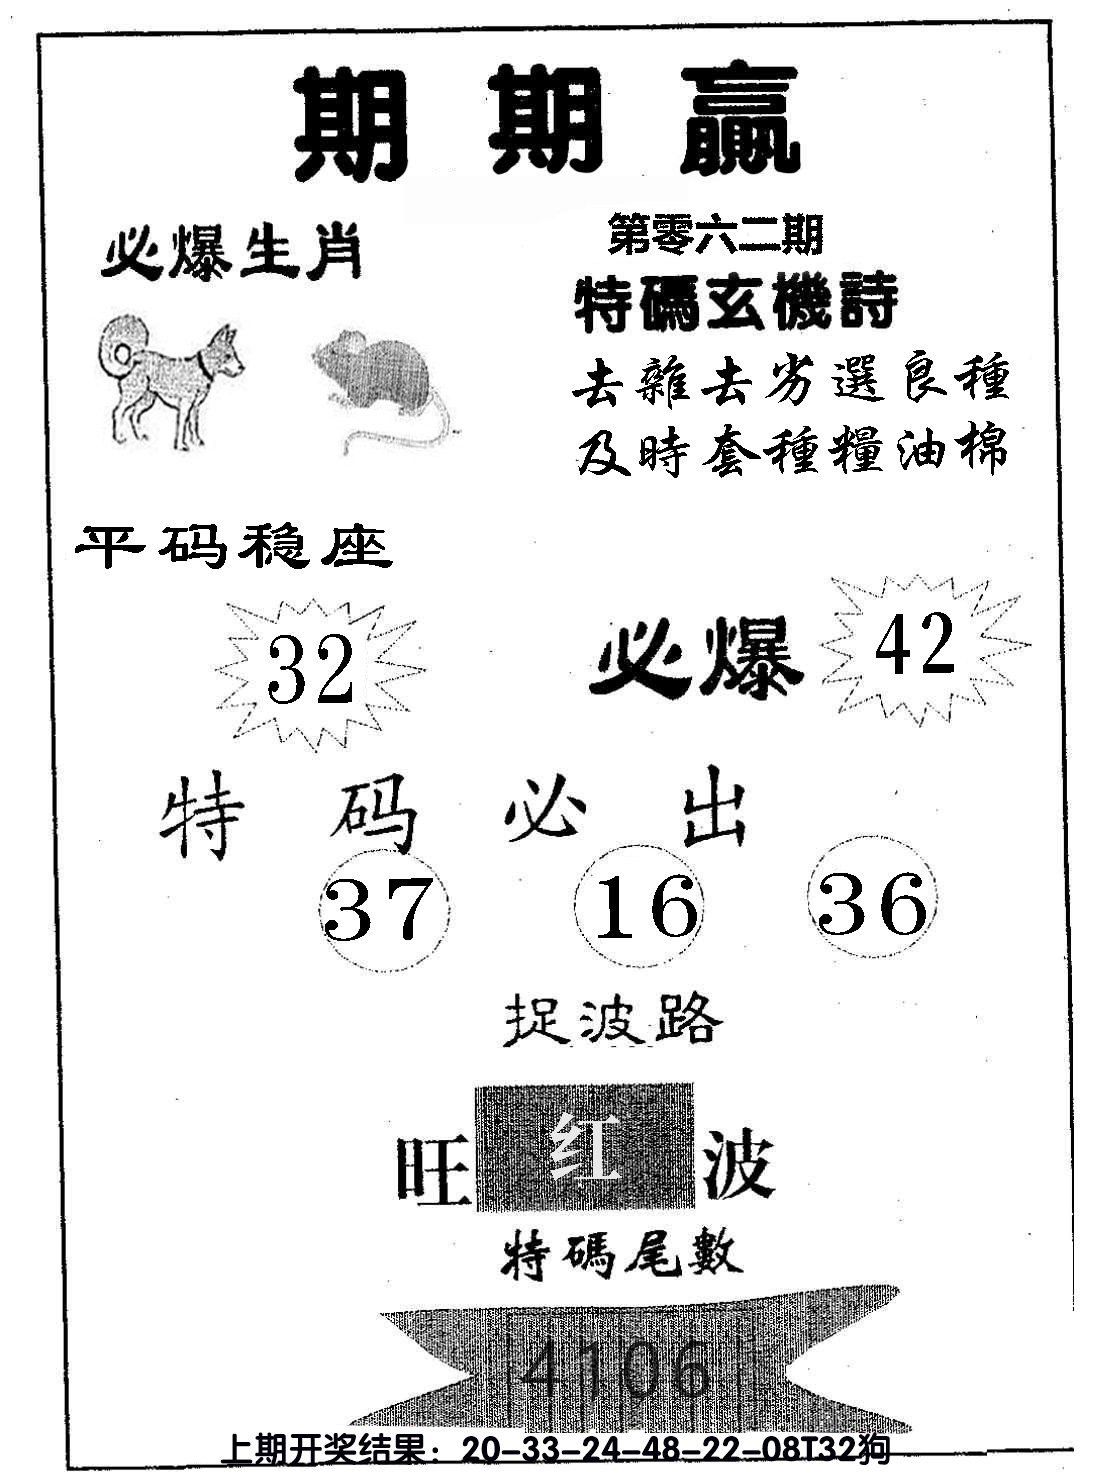 期期贏
必爆生肖
第零六二期
特碼玄機詩
去雜去劣選良種
及時套種糧油棉
平码稳座
32
必爆 42
特码必出
37 16 36
捉波路
旺 红 波
特碼尾數
4106
上期开奖结果：20-33-24-48-22-08T32狗